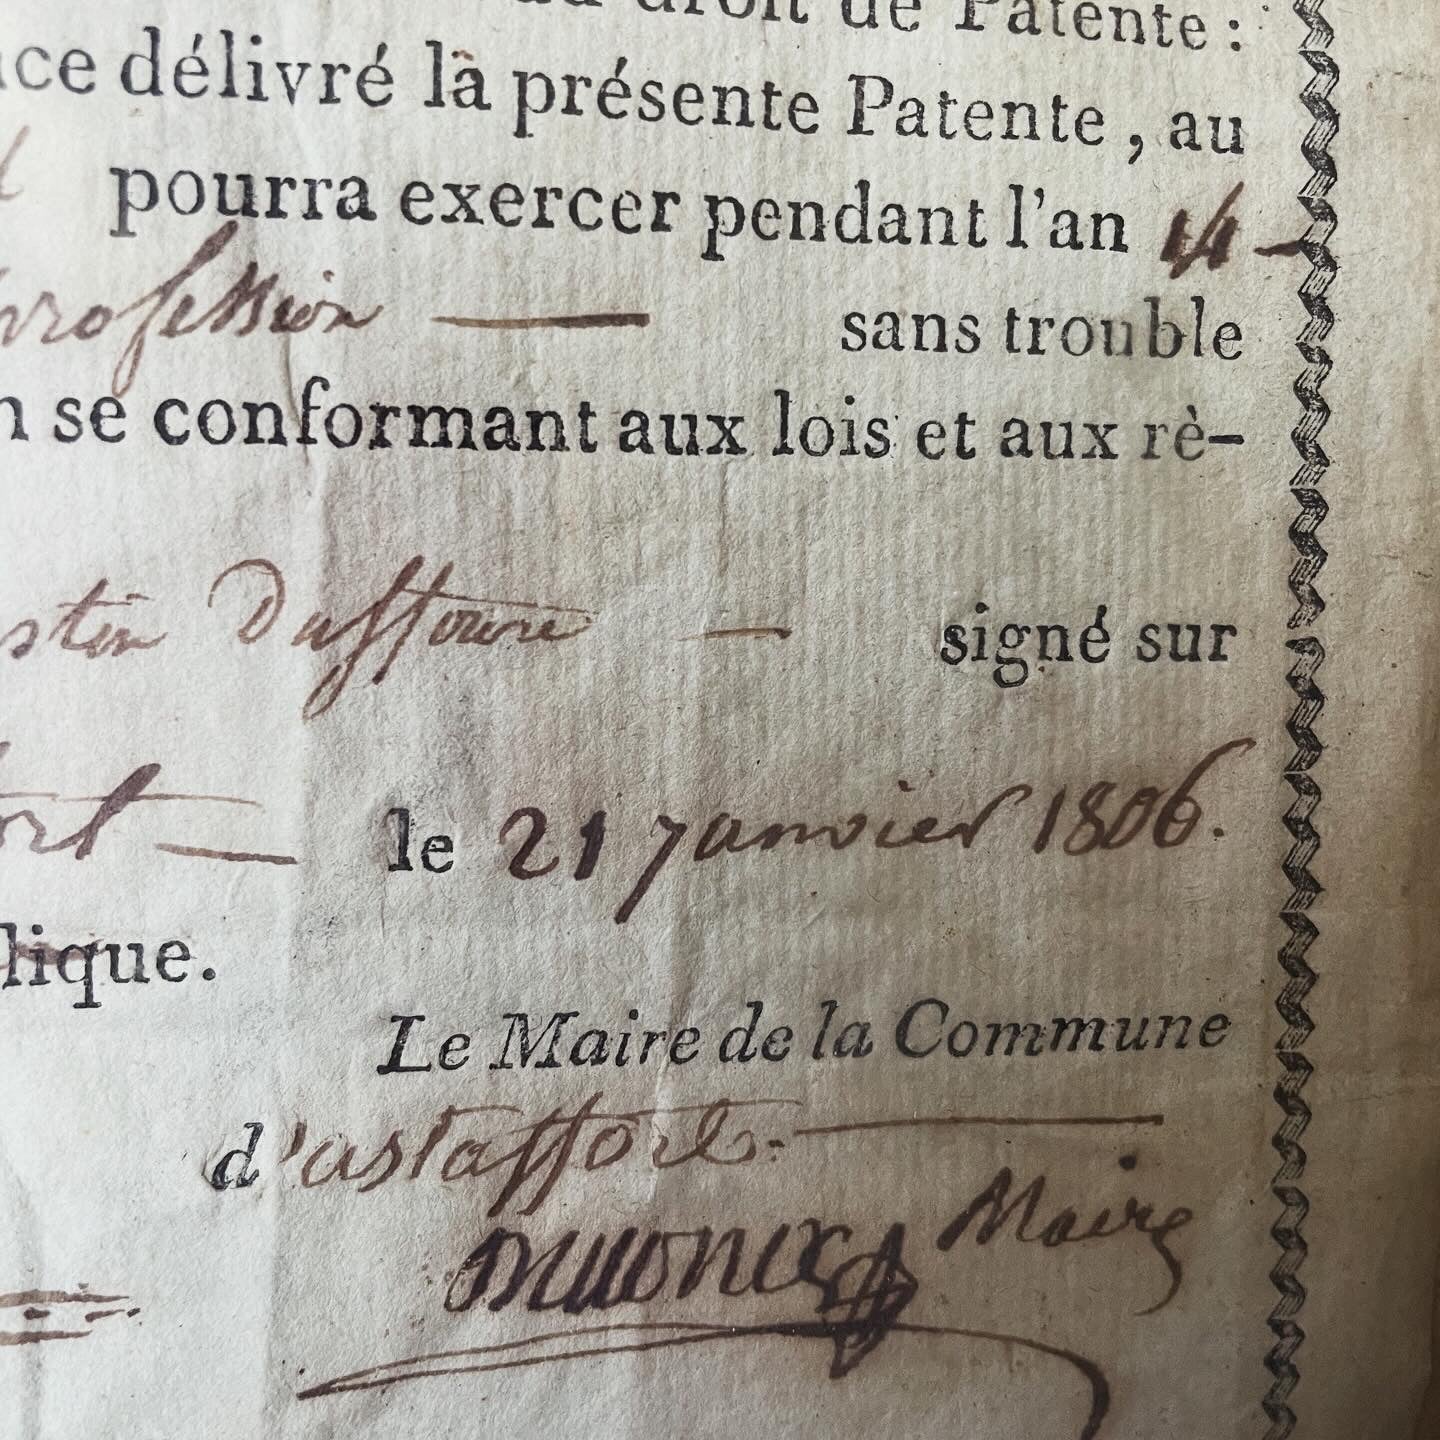 au droit de Patente :
ce délivré la présente Patente, au
pourra exercer pendant l'an 14 —
profession — sans trouble
n se conformant aux lois et aux rè-
stin Duffourc — signé sur
ort — le 21 janvier 1806.
lique.
Le Maire de la Commune
d'astaffort. —
Maire